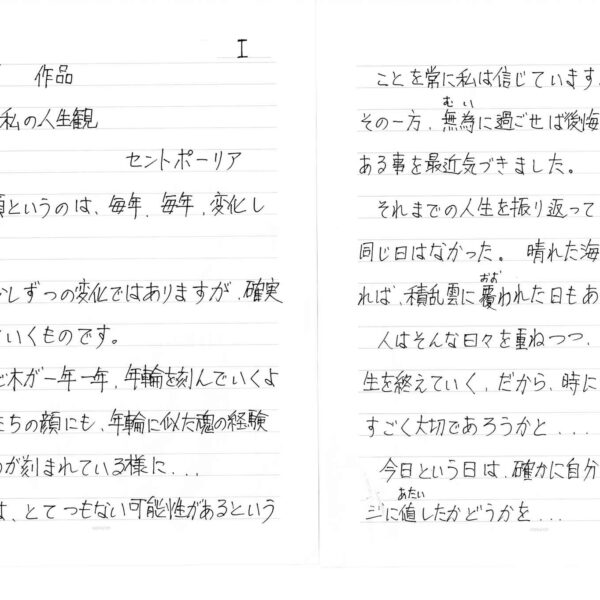 I
作品
私の人生観
セントポーリア
というのは、毎年、毎年、変化し
しずつの変化ではありますが、確実
いくものです。
木が一年一年、年輪を刻んでいくよ
ちの顔にも、年輪に似た魂の経験
が刻まれている様に...
、とてつもない可能性があるという
ことを常に私は信じています
むい
その一方、無為に過ごせば後悔
ある事を最近気づきました。
それまでの人生を振り返って
同じ日はなかった。晴れた海
おお
れば、積乱雲に覆われた日もあ
人はそんな日々を重ねつつ、
生を終えていく、だから、時に
すごく大切であろうかと...
今日という日は、確かに自分
あたい
ジに値したかどうかを...